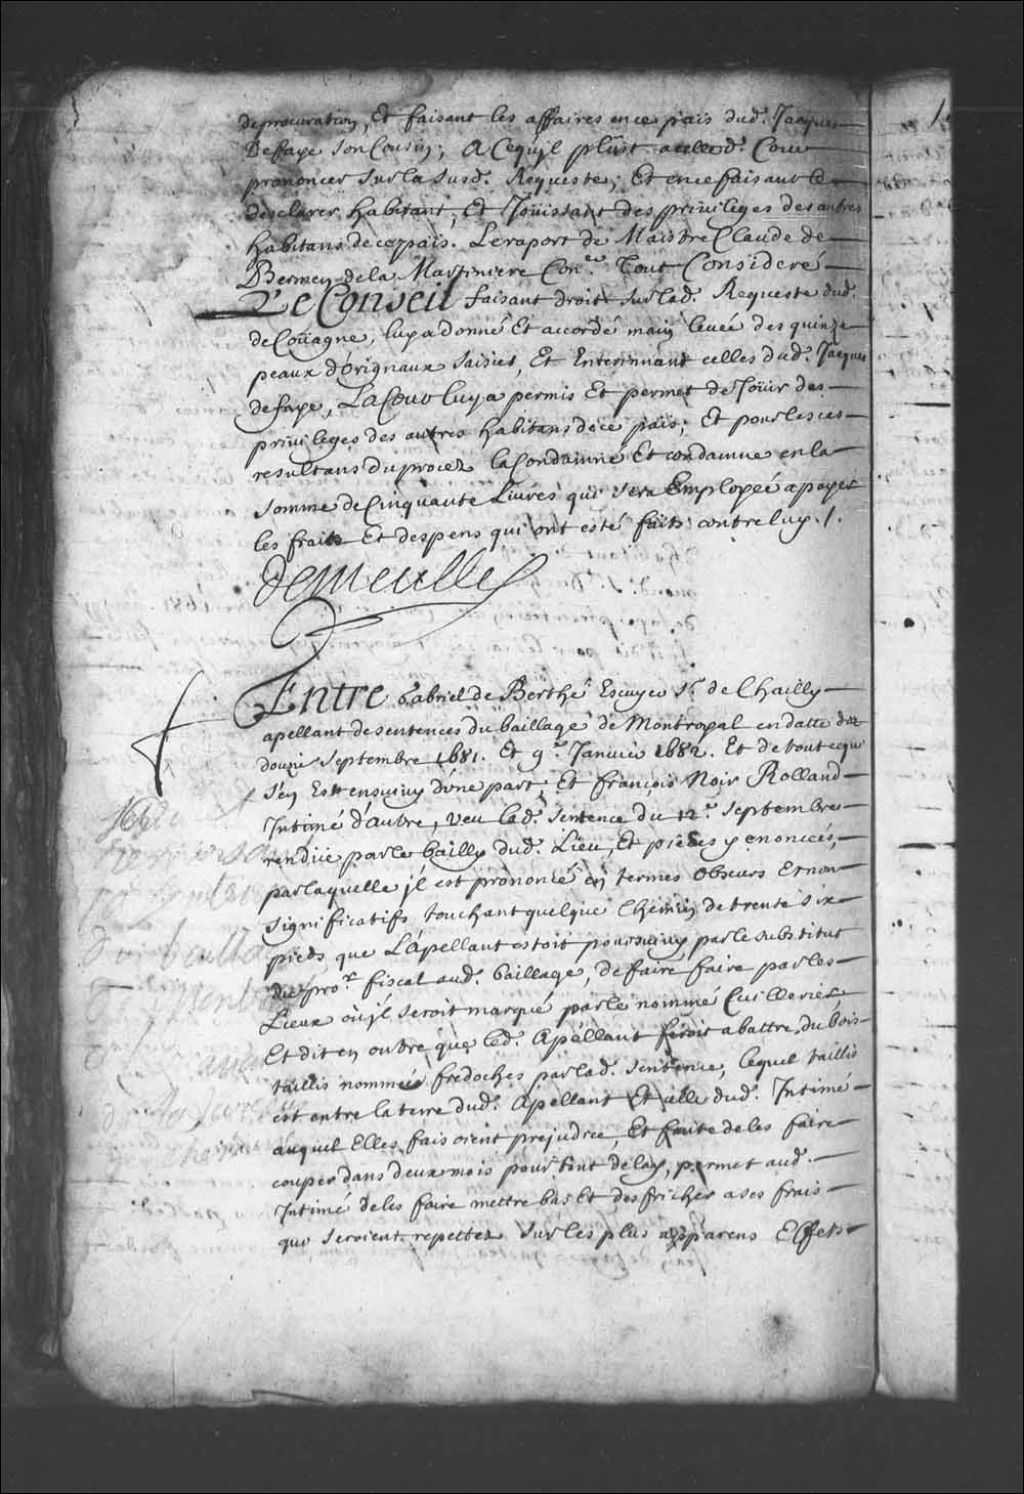 de procuration, Et faisant les affaires en ce païs dud. Jacques
Defaye son Cousin; A Ce qu'jl plust a cette d. Cour
prononcer sur la susd. Requeste; Et en ce faisant le
desclarer habitant, Et Joüissant des priuileges des autres
habitans de ce païs. Le raport de Maistre Claude de
Bermen de la Martiniere Con.er Tout Consideré
Le Conseil faisant droit sur lad. Requeste dud.
de Coüagne, luy a donné Et accordé main leuée des quinze
peaux d'Orignaux saisies, Et Enterinnant celles dud. Jacques
defaye, La Cour luy a permis Et permet de Joüir des
priuileges des autres habitans de ce païs; Et pour les cas
resultans du procez la Condamné Et condamne en la
somme de Cinquante Liures qui sera Employeé a payer
les frais Et despens qui ont esté faits contre luy ./.
Demeulle
Entre Gabriel de Berthé Escuyer s.r de Chailly
apellant de sentences du baillage de Montroyal en datte des
douze Septembre 1681. Et 9.e Januier 1682. Et de tout ce qui
s'en Est ensuiuy d'vne part, Et françois Noir Rolland
Intimé d'autre, veu lad. sentence du 12.e septembre
rendüe par le bailly dud. Lieu, Et pieces y enoncées,
par laquelle jl est prononcé en termes obscurs Et non
significatifs touchant quelque Chemin de trente six
pieds que L'apellant estoit poursuiuy par le substitut
du pro.r fiscal aud. baillage, de faire faire par les
Lieux où jl seroit marqué par le nommé Cuillerier,
Et dit en outre que led. Apellant feroit abattre du bois
taillis nommé fredoches par lad. sentence, lequel taillis
est entre la terre dud. Apellant Et celle dud. Intimé
auquel Elles faisoient prejudice, Et faute de les faire
couper dans deux mois pour tout delay, permet aud.
Intimé de les faire mettre bas Et desfricher a ses frais
qui seroient repettez sur les plus apparens Effets